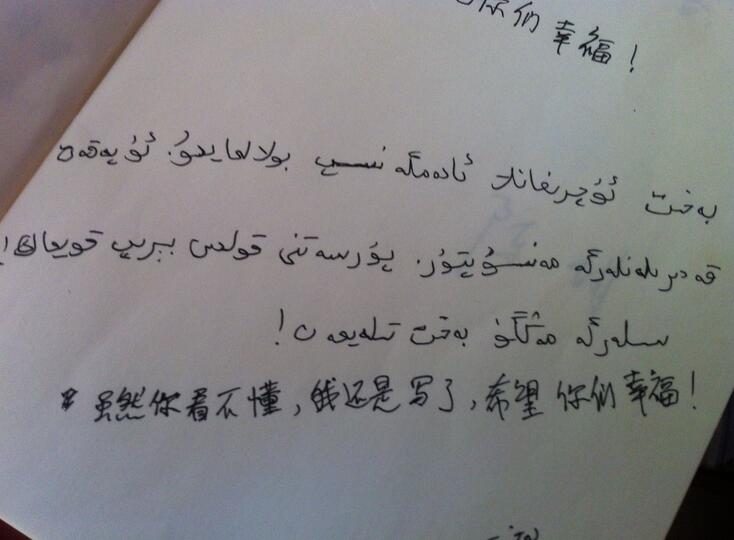 你们幸福!
بەخت ئۇچرىغانلا ئادەمگە نېسىپ بولالمايدۇ. ئۇ پەقەت
قەدىرلەنلەرگە مەنسۇپتۇر. پۇرسەتنى قولدىن بېرىپ قويماڭ!
سىلەرگە مەڭگۈ بەخت تىلەيمەن!
虽然你看不懂,我还是写了,希望你们幸福!